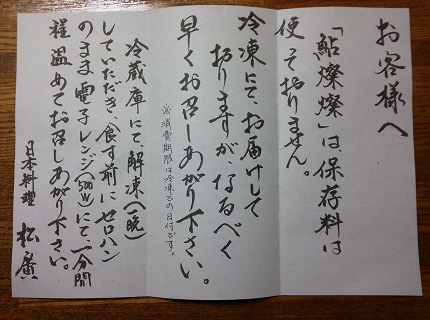 お客様へ
「鮎燦燦」は、保存料は
使っておりません。
冷凍にて、お届けして
おりますが、なるべく
早くお召しあがり下さい。
※消費期限は冷凍での日付です。
冷蔵庫にて、解凍(一晩)
していただき、食す前にセロハン
のまま電子レンジ(500W)にて、一分間
程温めてお召しあがり下さい。
日本料理 松廣